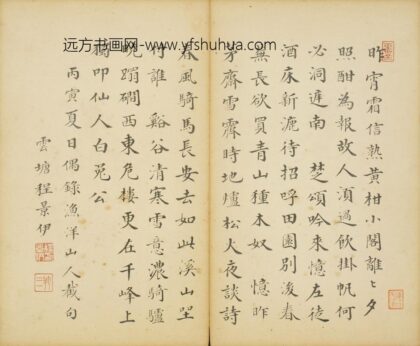 远方书画网-www.yfshuhua.com
昨宵霜信熟黄柑小閣離〻夕
照酣為報故人須過飲掛帆何
必洞遅南 楚頌吟來憶左徒
酒床新漉待招呼田園别後春
無長欲買青山種木奴 憶昨
茅齋雪霽時地爐松火夜談詩
春風騎馬長安去如此溪山
付誰 谿谷清寒雪意濃騎驢
蹋磵西東危樓更在千峰上
獨叩仙人白兎公
丙寅夏日偶録漁洋山人截句
雲塘程景伊